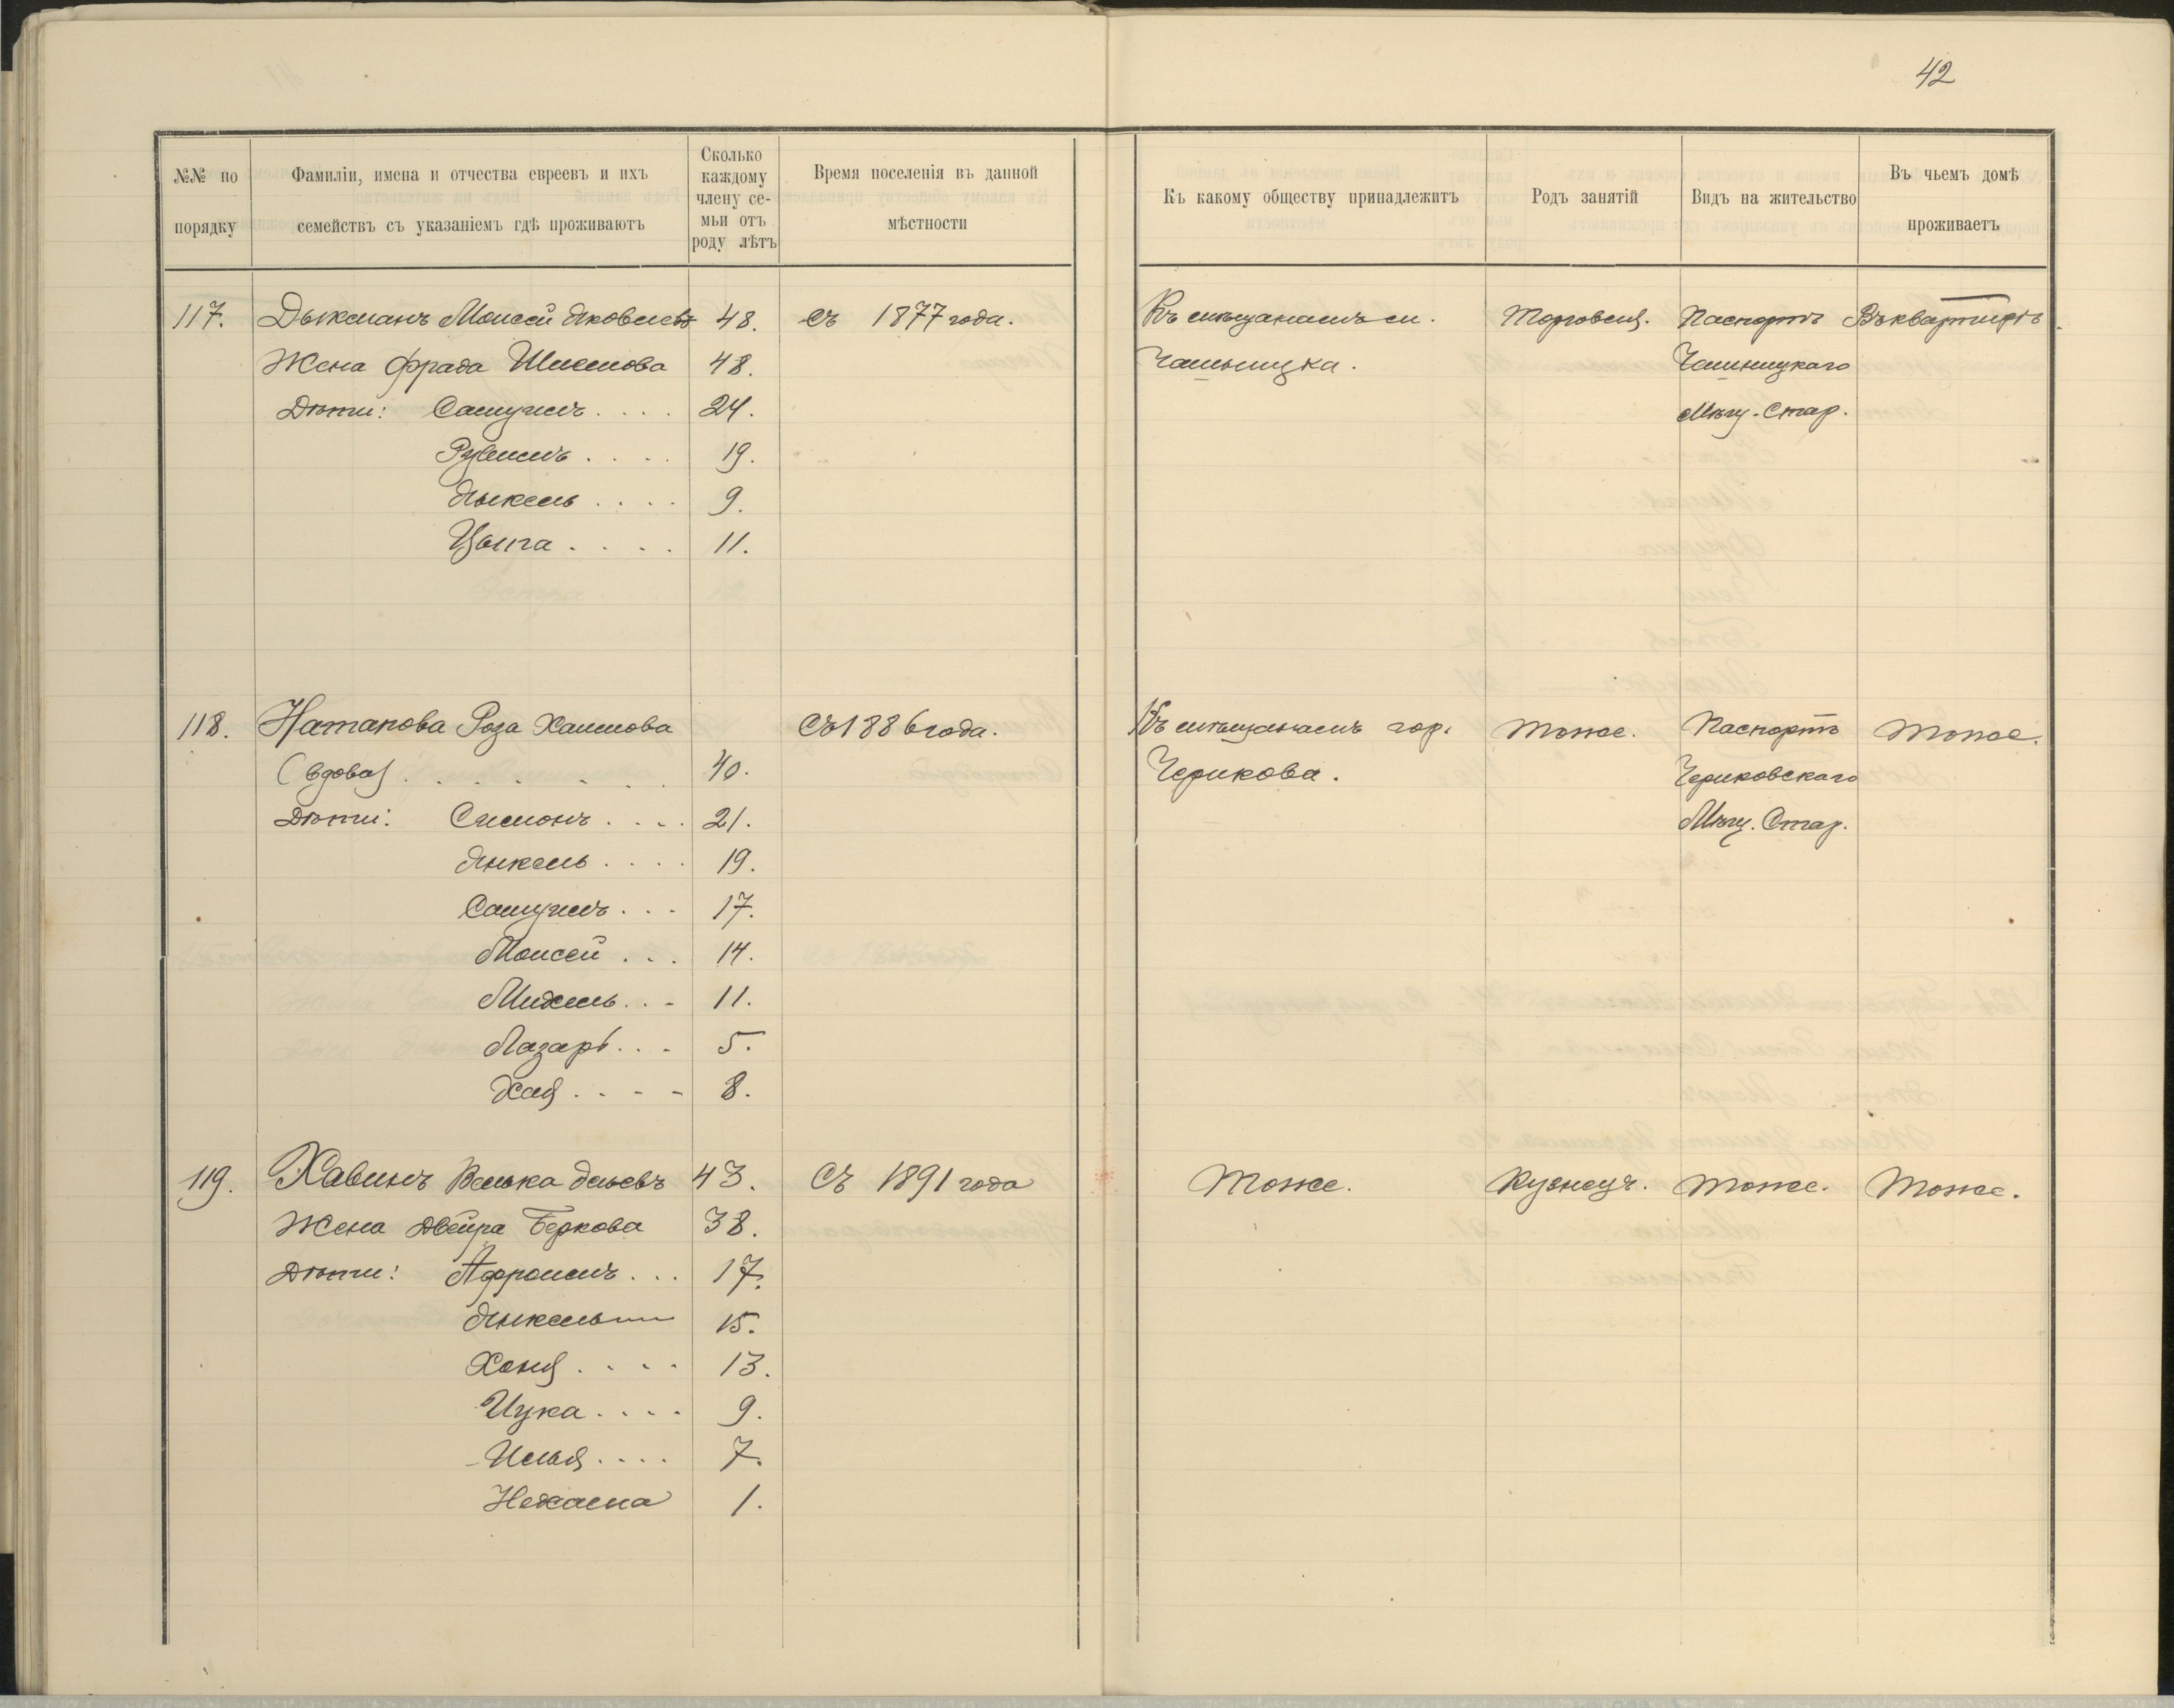 42
№№ по порядку
Фамиліи, имена и отчества евреевъ и ихъ семействъ съ указаніемъ гдѣ проживаютъ
Сколько каждому члену семьи отъ роду лѣтъ
Время поселенія въ данной мѣстности
Къ какому обществу принадлежитъ
Родъ занятій
Видъ на жительство
Въ чьемъ домѣ проживаетъ
117. Дыкманъ Моисей Яковлевъ 48. съ 1877 года. Къ мѣщанамъ м. Торговля. Паспортъ Въ квартирѣ
Жена Фрада 48. Чашницкаго
Дѣти: Самуилъ . . . . 24. Мѣщ. Стар.
Рувимъ . . . . 19.
Янкель . . . . 9.
11.
118. Натапова Роза Хаимова Съ 1886 года. Къ мѣщанамъ гор. Тоже. Паспортъ Тоже.
(вдова) . . . . . . 40. Черикова. Чериковскаго
Дѣти: Симонъ . . . . 21. Мѣщ. Стар.
Янкель . . . . 19.
Самуилъ . . . 17.
Моисей . . . 14.
Михель . . . 11.
Лазарь . . . 5.
Хая . . . . 8.
119. Хавинъ Велька 43. Съ 1891 года Тоже. Кузнецъ. Тоже. Тоже.
Жена Двейра Беркова 38.
Дѣти: Афроимъ . . . 17.
Янкель 15.
Хоня . . . . 13.
Ицка . . . . 9.
Илья . . . . 7.
Нехама 1.